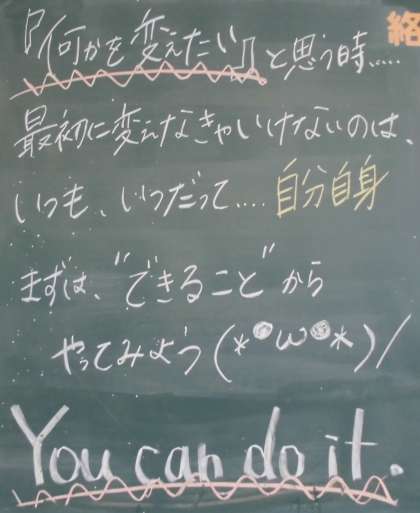 『何かを変えたい』と思う時.....
最初に変えなきゃいけないのは、
いつも、いつだって....自分自身
まずは、"できること"から
やってみよう(*●ω●*)/
You can do it.
絡